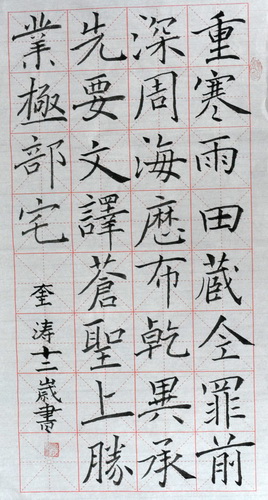 重寒雨田蔵今罪前
深周海歴布乾異承
先要文譯蒼聖上勝
業極部宅
奎涛十二歲書